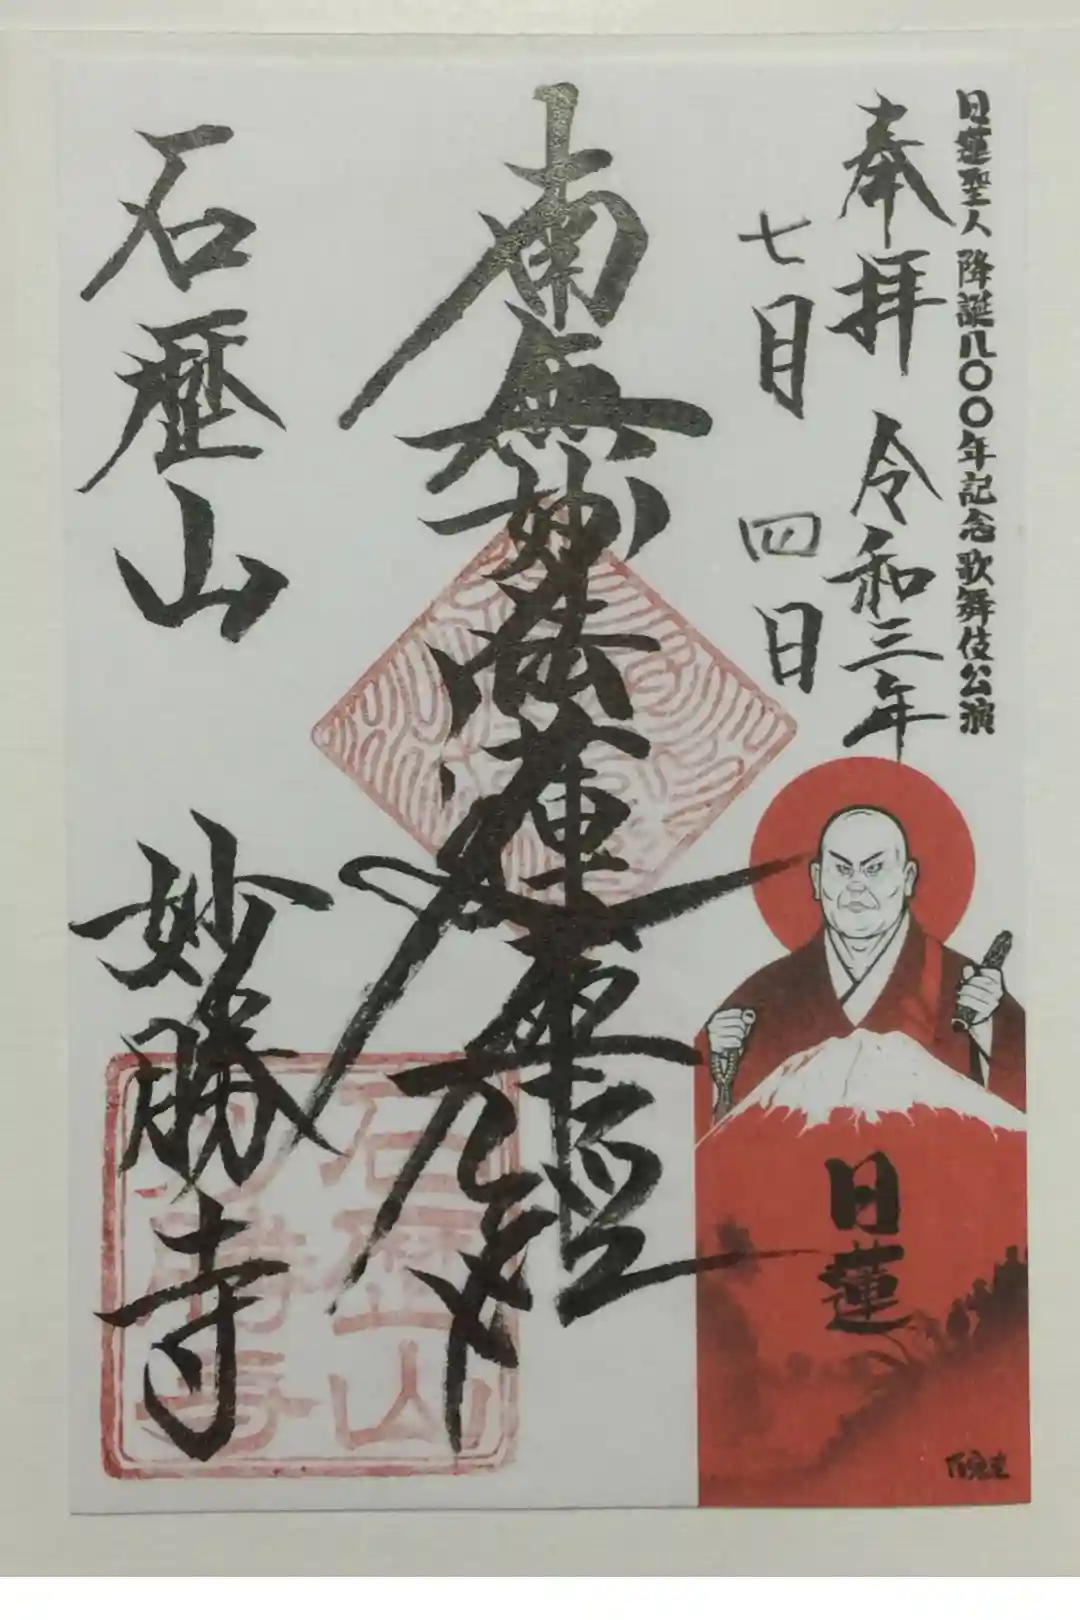 日蓮聖人降誕八〇〇年記念歌舞伎公演
奉拝 令和三年
七月四日
南無妙法蓮華経
石歴山 妙勝寺
日蓮
石歴山
妙勝寺